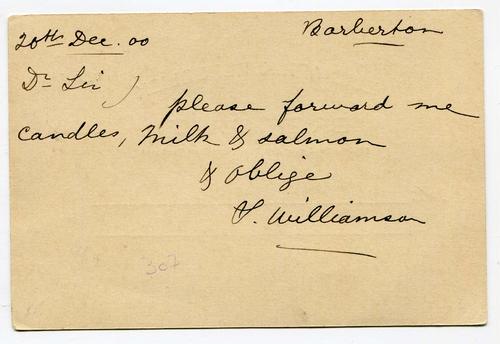 20th Dec. 00 Barberton
Dr Sir
please forward me
candles, milk & salmon
& oblige
Williamson
307